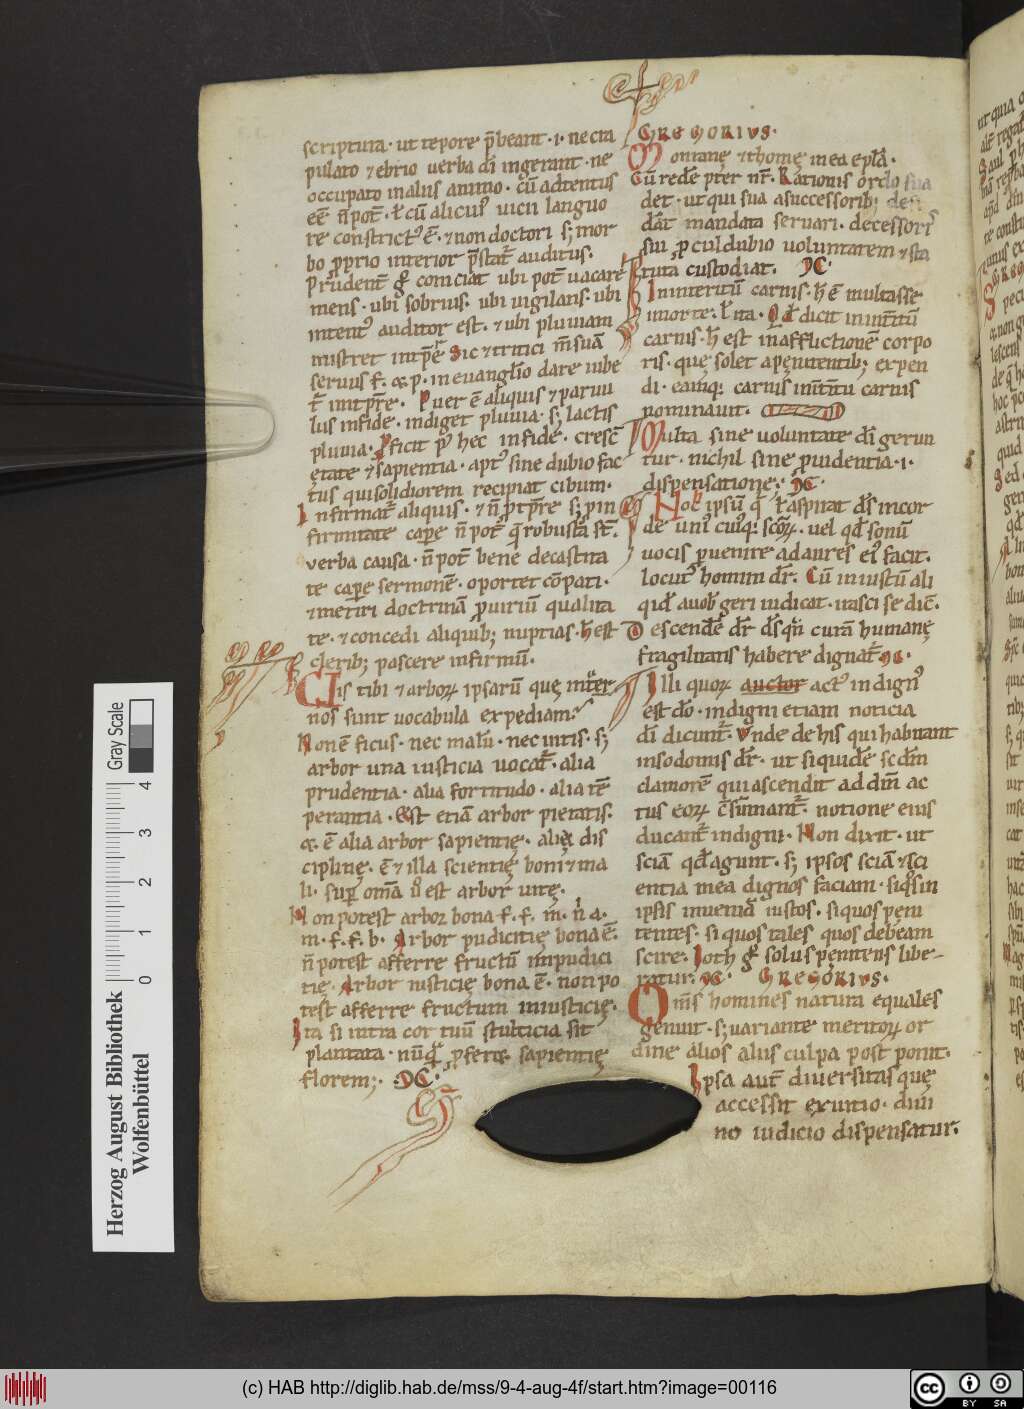 scriptura· ut tepore p̄beant ·i· ne cra
pulato ⁊ ebrio verba dī ingerant· ne
occupato malus animo· cū adtentus
eē n̄ pot̄· ł cū alicuiꝰ uicii languo
re constrictꝰ ē· ⁊ non doctori sꝫ mor
bo ꝓprio interior p̄stat᷑ auditus·
Prudent̄ g̊ coniciat ubi pot̄ uacare
mens· ubi sobrius· ubi uigilans· ubi
intentꝰ auditor est· ⁊ ubi pluuiam
seruus f· ⁊ p· in euangl̄io dare iube
Puer ē aliquis ⁊ paruu
lus in fide· indiget pluuia· sꝫ lactis
pluuia· ꝓficit p̄ hec in fide· cresc̄
ętate ⁊ sapientia· aptꝰ sine dubio fac
tus qui solidiorem recipiat cibum·
Infirmat᷑ aliquis·
firmitate capere n̄ pot̄
verba causa· n̄ pot̄ bene de castita
te capere sermonē· oportet cōpati·
⁊ metiri doctrinā ꝓ uiriū qualita
te· ⁊ concedi aliquibꝫ nuptias· h̄ est
cleribꝫ pascere infirmū·
is tibi ⁊ arboꝝ ipsarū quę int̄
nos sunt uocabula expediam
Non ē ficus· nec malū· nec uitis· sꝫ
arbor una iusticia uocat᷑· alia
prudentia· alia fortitudo· alia tē
perantia· Est etiā arbor pietatis·
⁊· ē alia arbor sapientię· alię dis
ciplinę· ē ⁊ illa scientię boni ⁊ ma
li· sup̄ om̄a ū est arbor uitę·
Non potest arbor bona f· f· m· n̄ a·
m· f· f· b· Arbor pudicitię bona ē·
n̄ potest afferre fructū impudici
tię· Arbor iusticię bona ē· non po
test afferre fructum iniusticię·
Ita si intra cor tuū stulticia sit
plantata· nūqͣ ꝓferes sapientię
florem;·
GREGORIVS·
Montanę ⁊ thomę mea epl̄a·
Cū redēpter nr̄· Rationis ordo sua
det· ut qui sua a successoribꝫ desi
dāt mandata seruari· decessoris
sui ꝓculdubio uoluntatem ⁊ sta
tuta custodiat·
In interitū carnis· h̄ ē multasse
morte· ł ita· Qd̄ dicit in int̄itū
carnis· h̄ est in afflictionē corpo
ris· quę solet a pęnitentibꝫ expen
di· eamqꝫ carnis int̄itū carnis
nominauit·
Multa sine uoluntate dī gerun
tur· nichil sine ꝓuidentia ·i·
dispensatione·
Hoc ipsū q̄ ł aspirat d̄s in cor
de uniꝰ cuiꝰqꝫ scōꝝ· uel qd̄ sonū
uocis ꝓuenire ad aures eiꝰ facit·
locutꝰ homini dr̄· Cū iniustū ali
qid̄ a uob̄ geri iudicat· irasci se dic̄·
Descendē dr̄ d̄s qn̄ curā humanę
fragilitatis habere dignat᷑
Illi quoꝝ auctor actꝰ indignꝰ
est dō· indigni etiam noticia
dī dicunt᷑· Vnde de his qui habitant
in sodomis dr̄· ut siquidē scdm̄
clamorē qui ascendit ad dm̄ ac
tus eoꝝ
ducant᷑ indigni· Non dixit· ut
sciā qd̄ agunt· sꝫ ipsos sciā ⁊ sci
entia mea dignos faciam· si qͦs in
ipsis inueniā iustos· si quos peni
tentes· si quos tales quos debeam
scire· Loth g̊ solus penitens libe-
ratur· GREGORIVS·
Om̄s homines natura equales
genuit· sꝫ uariante meritoꝝ or
dine alios aliis culpa post ponit·
Ipsa aut̄ diuersitas quę
accessit ex uitio· diui
no iudicio dispensatur·
Gray Scale
4
3
2
1
0
Herzog August Bibliothek
Wolfenbüttel
(c) HAB http://diglib.hab.de/mss/9-4-aug-4f/start.htm?image=00116
cc BY SA